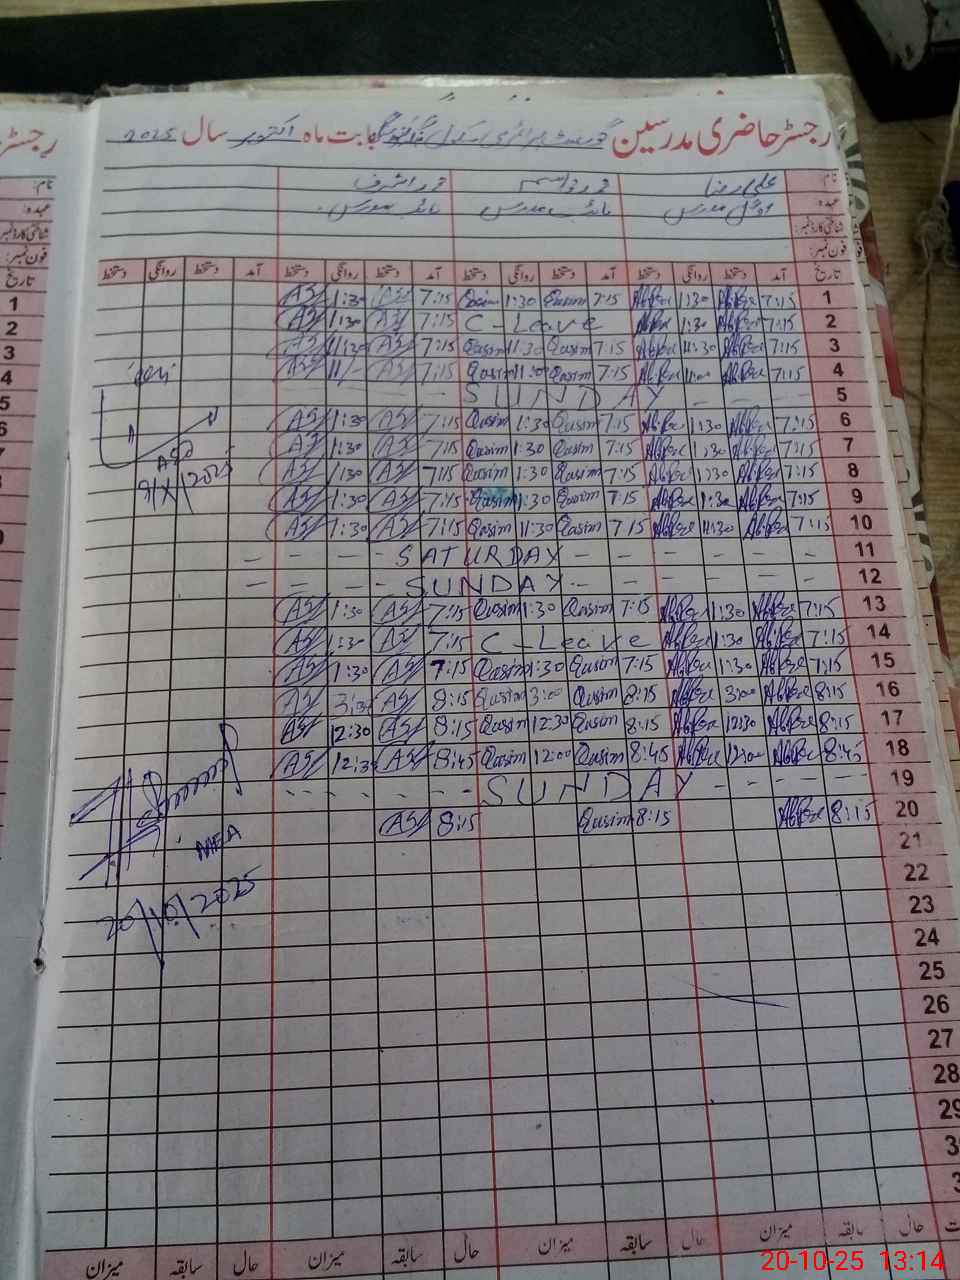 رجسٹر حاضری مدرسین گورنمنٹ پرائمری سکول بابت ماہ اکتوبر سال 2025
نام: علی رضا محمد قاسم محمد اشرف
عہدہ:
شناختی کارڈ نمبر:
فون نمبر:
تاریخ آمد دستخط روانگی دستخط آمد دستخط روانگی دستخط آمد دستخط روانگی دستخط آمد دستخط روانگی دستخط
1 7:15 1:30 7:15 Qasim 1:30 Qasim 7:15 AS 1:30 AS
2 7:15 1:30 C-Leave 7:15 AS 1:30 AS
3 7:15 11:30 7:15 Qasim 11:30 Qasim 7:15 AS 11:30 AS
4 7:15 11:00 7:15 Qasim 11:30 Qasim 7:15 AS 11/- AS
5 SUNDAY
6 7:15 1:30 7:15 Qasim 1:30 Qasim 7:15 AS 1:30 AS
7 7:15 1:30 7:15 Qasim 1:30 Qasim 7:15 AS 1:30 AS
8 7:15 1:30 7:15 Qasim 1:30 Qasim 7:15 AS 1:30 AS
9 7:15 1:30 7:15 Qasim 1:30 Qasim 7:15 AS 1:30 AS
10 7:15 11:30 7:15 Qasim 11:30 Qasim 7:15 AS 1:30 AS
11 SATURDAY
12 SUNDAY
13 7:15 1:30 7:15 Qasim 1:30 Qasim 7:15 AS 1:30 AS
14 7:15 1:30 C-Leave 7:15 AS 1:30 AS
15 7:15 1:30 7:15 Qasim 1:30 Qasim 7:15 AS 1:30 AS
16 8:15 3:00 8:15 Qasim 3:00 Qasim 8:15 AS AS
17 8:15 12:30 8:15 Qasim 12:30 Qasim 8:15 AS 12:30 AS
18 8:45 12:00 8:45 Qasim 12:00 Qasim 8:45 AS 12:30 AS
19 SUNDAY
20 8:15 8:15 Qasim 8:15 AS
21
22
23
24
25
26
27
28
29
حال سابقہ میزان حال سابقہ میزان حال سابقہ میزان حال سابقہ میزان
9/X/2025
MEA
20/10/2025
رجسٹر
نام:
عہدہ:
شناختی کارڈ نمبر:
فون نمبر:
تاریخ
1
2
3
4
5
6
7
8
9
20-10-25 13:14